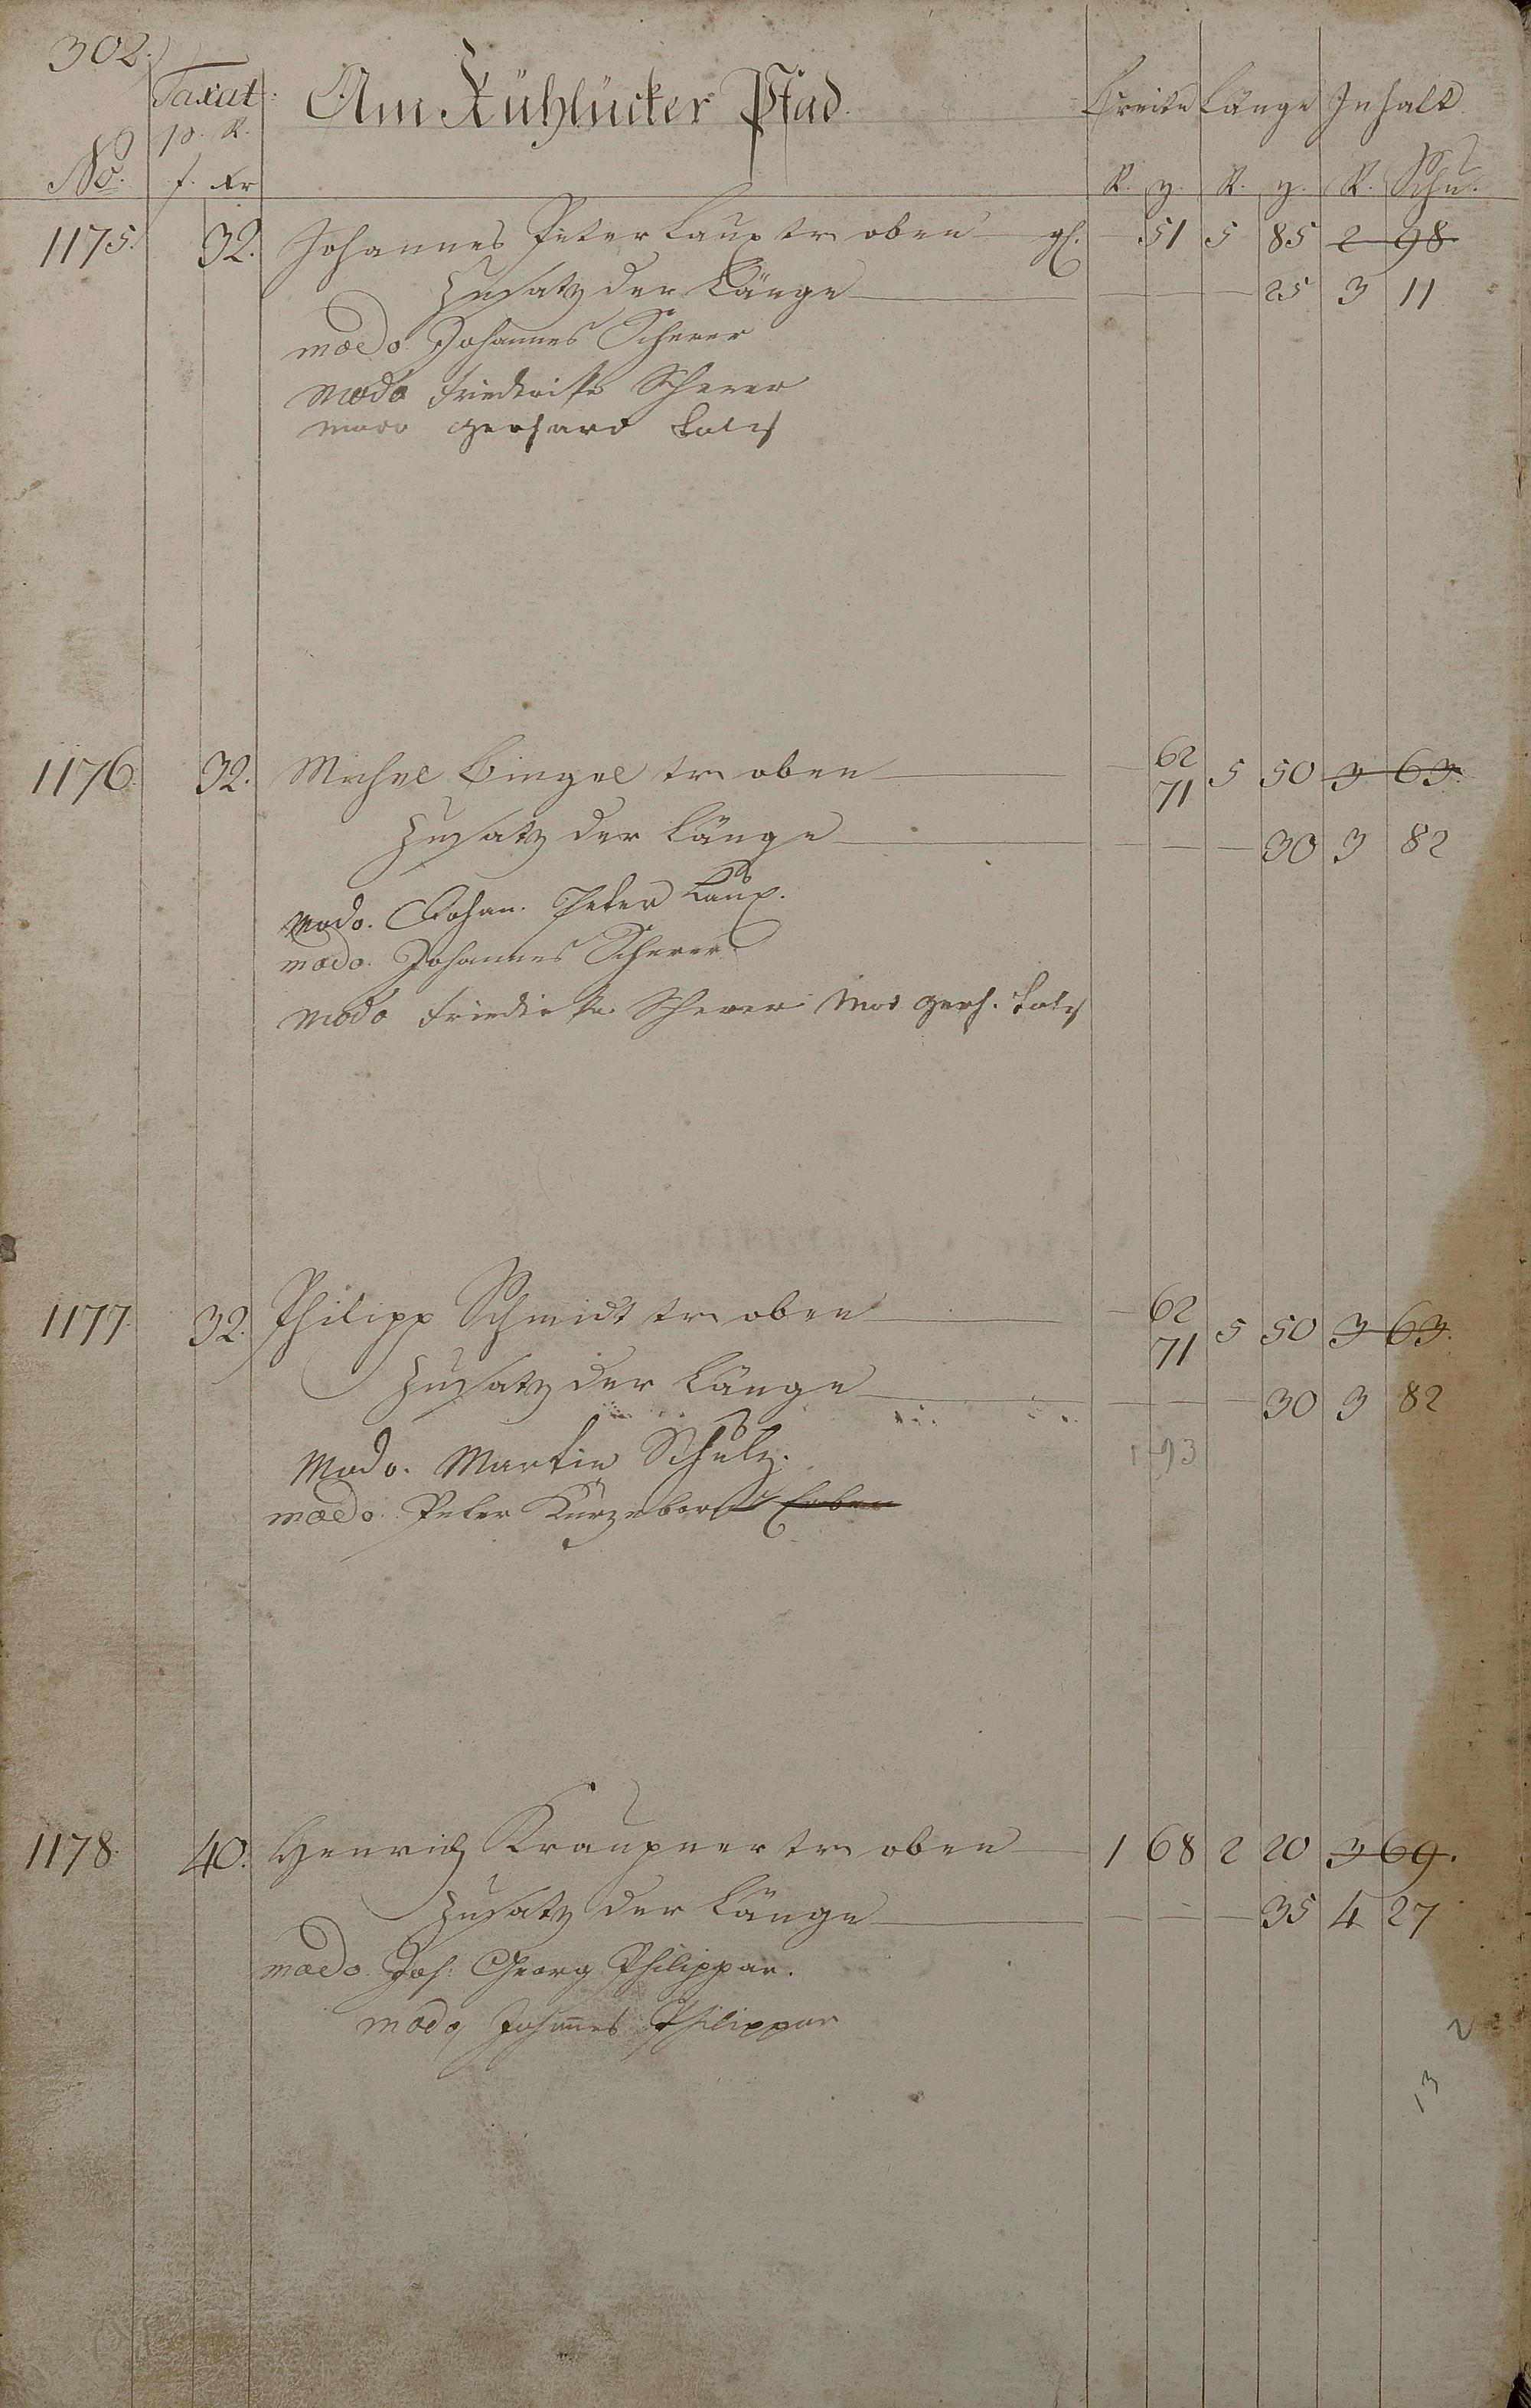 302.
Taxat: Am Kühlücker Pfad. Breite Länge Inhalt
p. R.
No. f. xr R. z. R. z. R. Schu.
1175. 32. Johannes Peter Laux tr. oben gl. 51 5 85 2 98
Zusatz der Länge 25 3 11
modo Johannes Scherer
modo Friedrike Scherer
modo Gerhard
1176. 32. Michel Bingel tr. oben 62 71 5 50 3 63.
Zusatz der Länge 30 3 82
modo. Johan. Peter Laux.
modo. Johannes Scherer
modo Friedrike Scherer mod Gerh.
1177. 32. Philipp Schmidt tr. oben 62 71 5 50 3 63.
Zusatz der Länge 30 3 82
1 93
modo. Martin Schulz.
modo. Peter Kurzeborn Erben
1178. 40. Henrich Kraupner tr. oben 1 68 2 20 3 69.
Zusatz der Länge 35 4 27
modo Joh: Georg Philippar.
modo Johannes Philippar
2
13